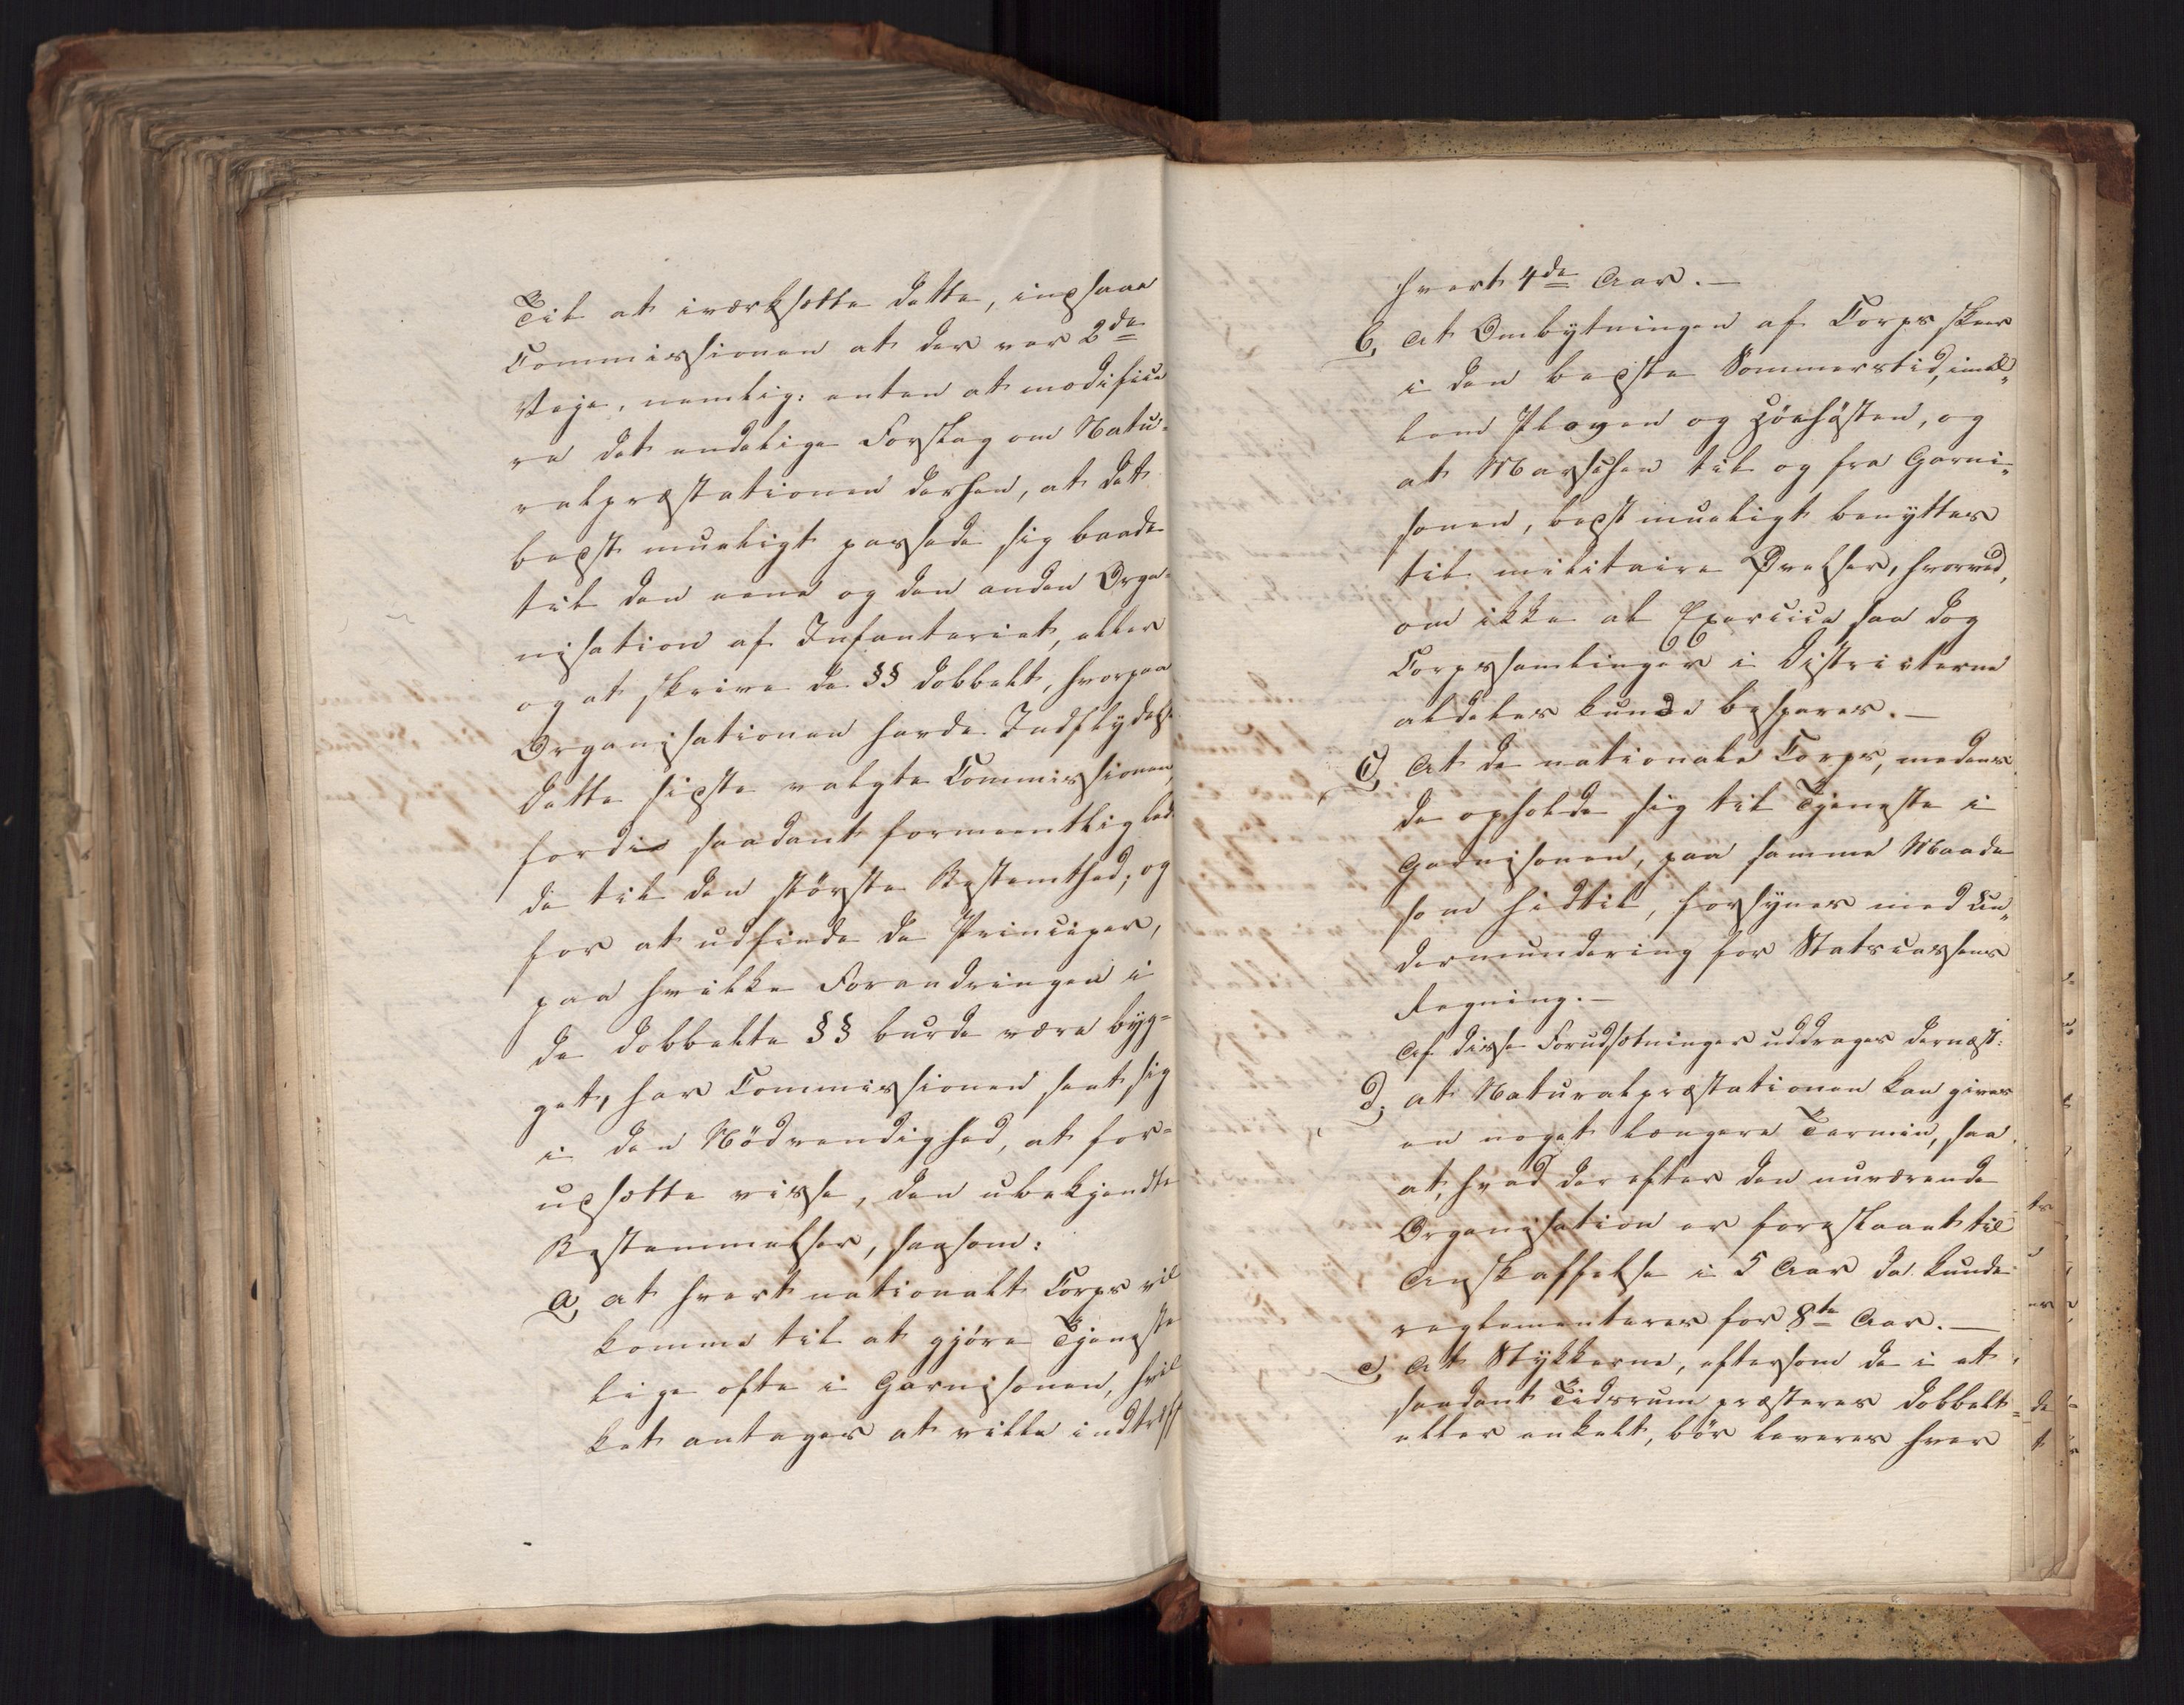 Til at iværksætte dette, indsaae
Commissionen at der var 2de
Veje, nemlig: enten at modifice
re det endelige Forslag om Natu-
ralpræstationen derhen, at det
bedst mueligt passede sig baade
til den eene og den anden Orga-
nisation af Infanteriet, eller
og at skrive de §§ dobbelt, hvorpaa
Organisationen havde Indflydelse
dette sidste valgte Commissionen,
fordi saadant formeentlig led-
de til den største Bestemthed; og
for at udfinde de Principer,
paa hvilke Forandringen i
de dobbelte §§ burde være byg-
get, har Commissionen seet sig
i den Nödvendighed, at for-
udsætte visse, den ubekjendte
Bestemmelser, saasom:
a, at hvert nationalt Corps vil
komme til at gjöre Tjeneste
lige ofte i Garnisonen, hvil
ket antages at ville indtreff
hvert 4de Aar.—
b, at Ombytningen af Corps skeer
i den bedste Sommerstid, imel„
lem Pløyen og Höehösten, og
at Marschen til og fra Garni„
sonen, bedst mueligt benyttes
til militaire Øvelser, hvorved,
om ikke al Exercice saa dog
Corpssamlinger i Districterne
aldeles kunde bespares.—
c, at de nationale Corps, medens
de opholde sig til Tjeneste i
Garnisonen, paa samme Maade
som hidtil, forsynes med Un„
dermundering for Statscassens
Regning.—
Af disse Forudsætninger uddrages dernæst:
d, at Naturalpræstationen kan gives
en noget længere Termin, saa
at, hvad der efter den nuværende
Organisation er foreslaaet til
Anskaffelse i 5 Aar da kunde
reglementeres for 8te Aar.—
e, at Stykkerne, eftersom de i et
saadant Tidsrum præsteres dobbelt
eller enkelt, bör leveres hver